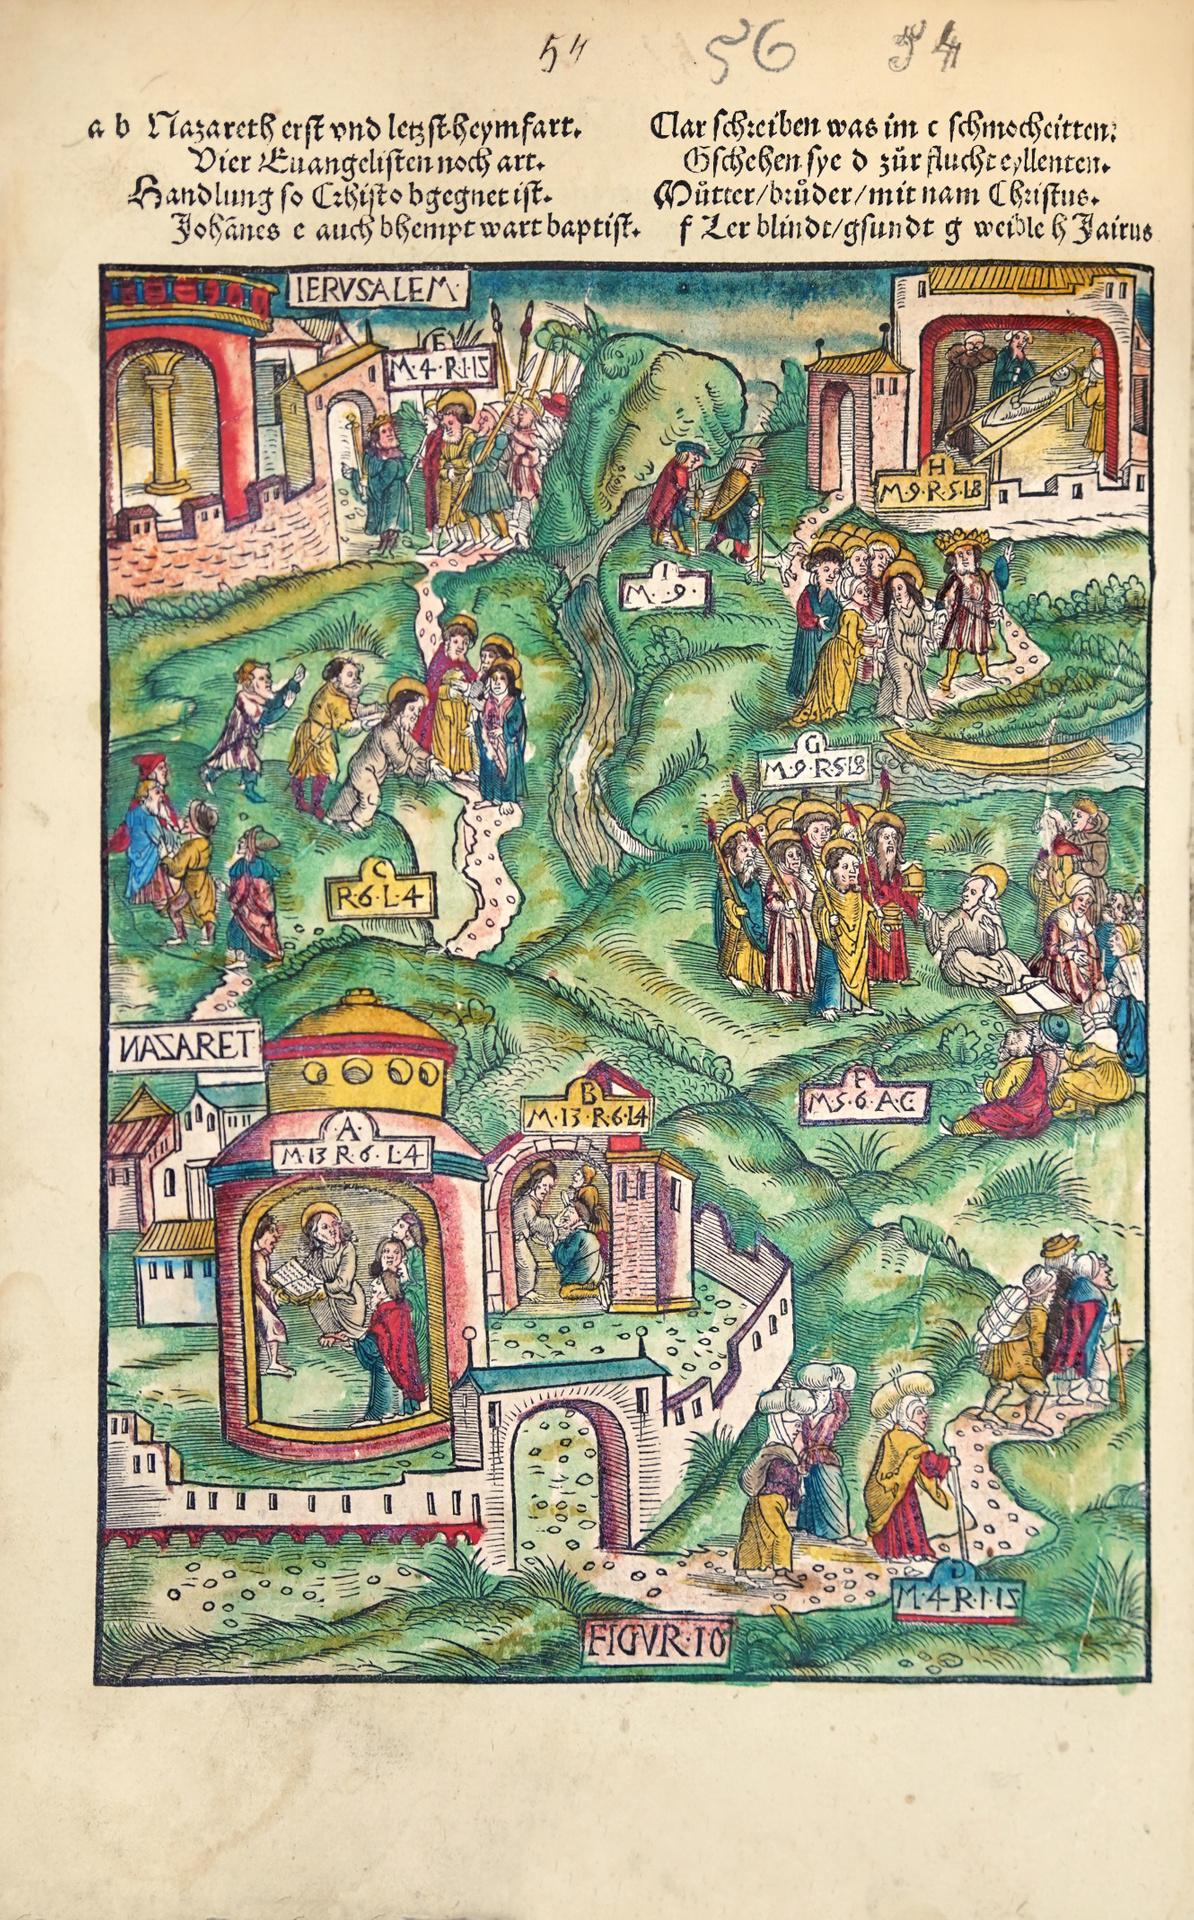 54 56 54
a b Nazareth erst vnd letzst heymfart.
Vier Euangelisten noch art.
Handlung so Crhisto bgegnet ist.
Johānes e auch bhempt wart baptist.
Clar schreiben was im c schmocheitten:
Gschehen sye d zůr flucht eyllenten.
Můtter/brůder/mit nam Christus.
f Ler blindt/gsundt g weible h Jairus
IERVSALEM
E
M·4·R·I·15
H
M·9·R·5·L8
I
M·9·
G
M·9·R·5·L8
C
R·6·L·4
NAZARET
B
M·13·R·6·L4
F
M·5·6·A·C
A
M·13·R·6·L·4
D
M·4·R·I·15
FIGVR·10